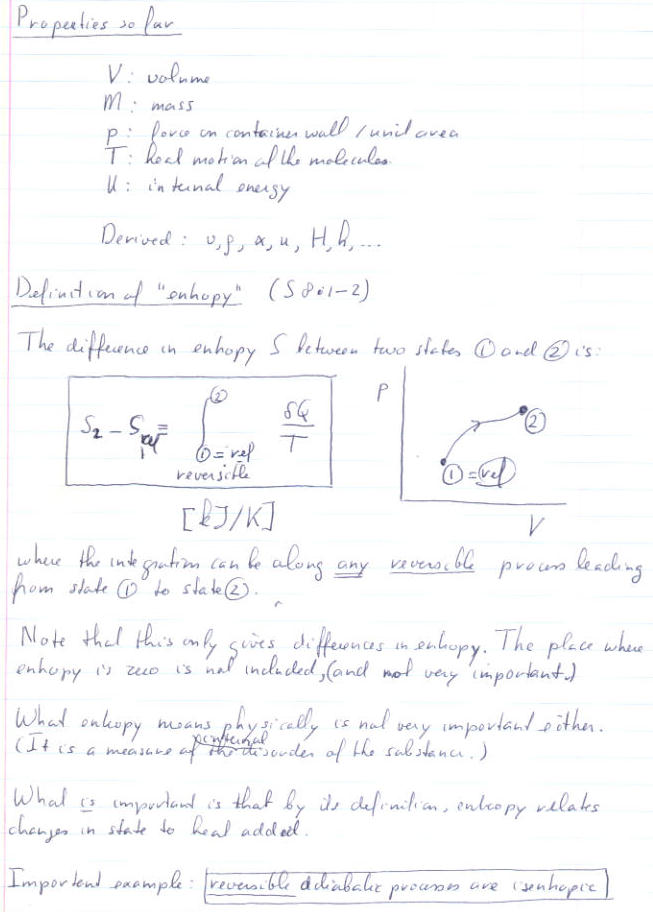 Properties so far
V : volume
M : mass
p : force on container wall / unit area
T : heat motion of the molecules.
U : internal energy
Derived : v, ρ, x, u, H, h, ...
Definition of "entropy" (S 8.1-2)
The difference in entropy S between two states ① and ② is:
S₂ - S ref 1 = ∫ ② ① = ref reversible δQ / T
P ② ① = ref V
[kJ/K]
where the integration can be along any reversible process leading
from state ① to state ②.
Note that this only gives differences in entropy. The place where
entropy is zero is not included, (and not very important.)
What entropy means physically is not very important either.
(It is a measure of the disorder of the substance.)
What is important is that by its definition, entropy relates
changes in state to heat added.
Important example : reversible adiabatic processes are isentropic